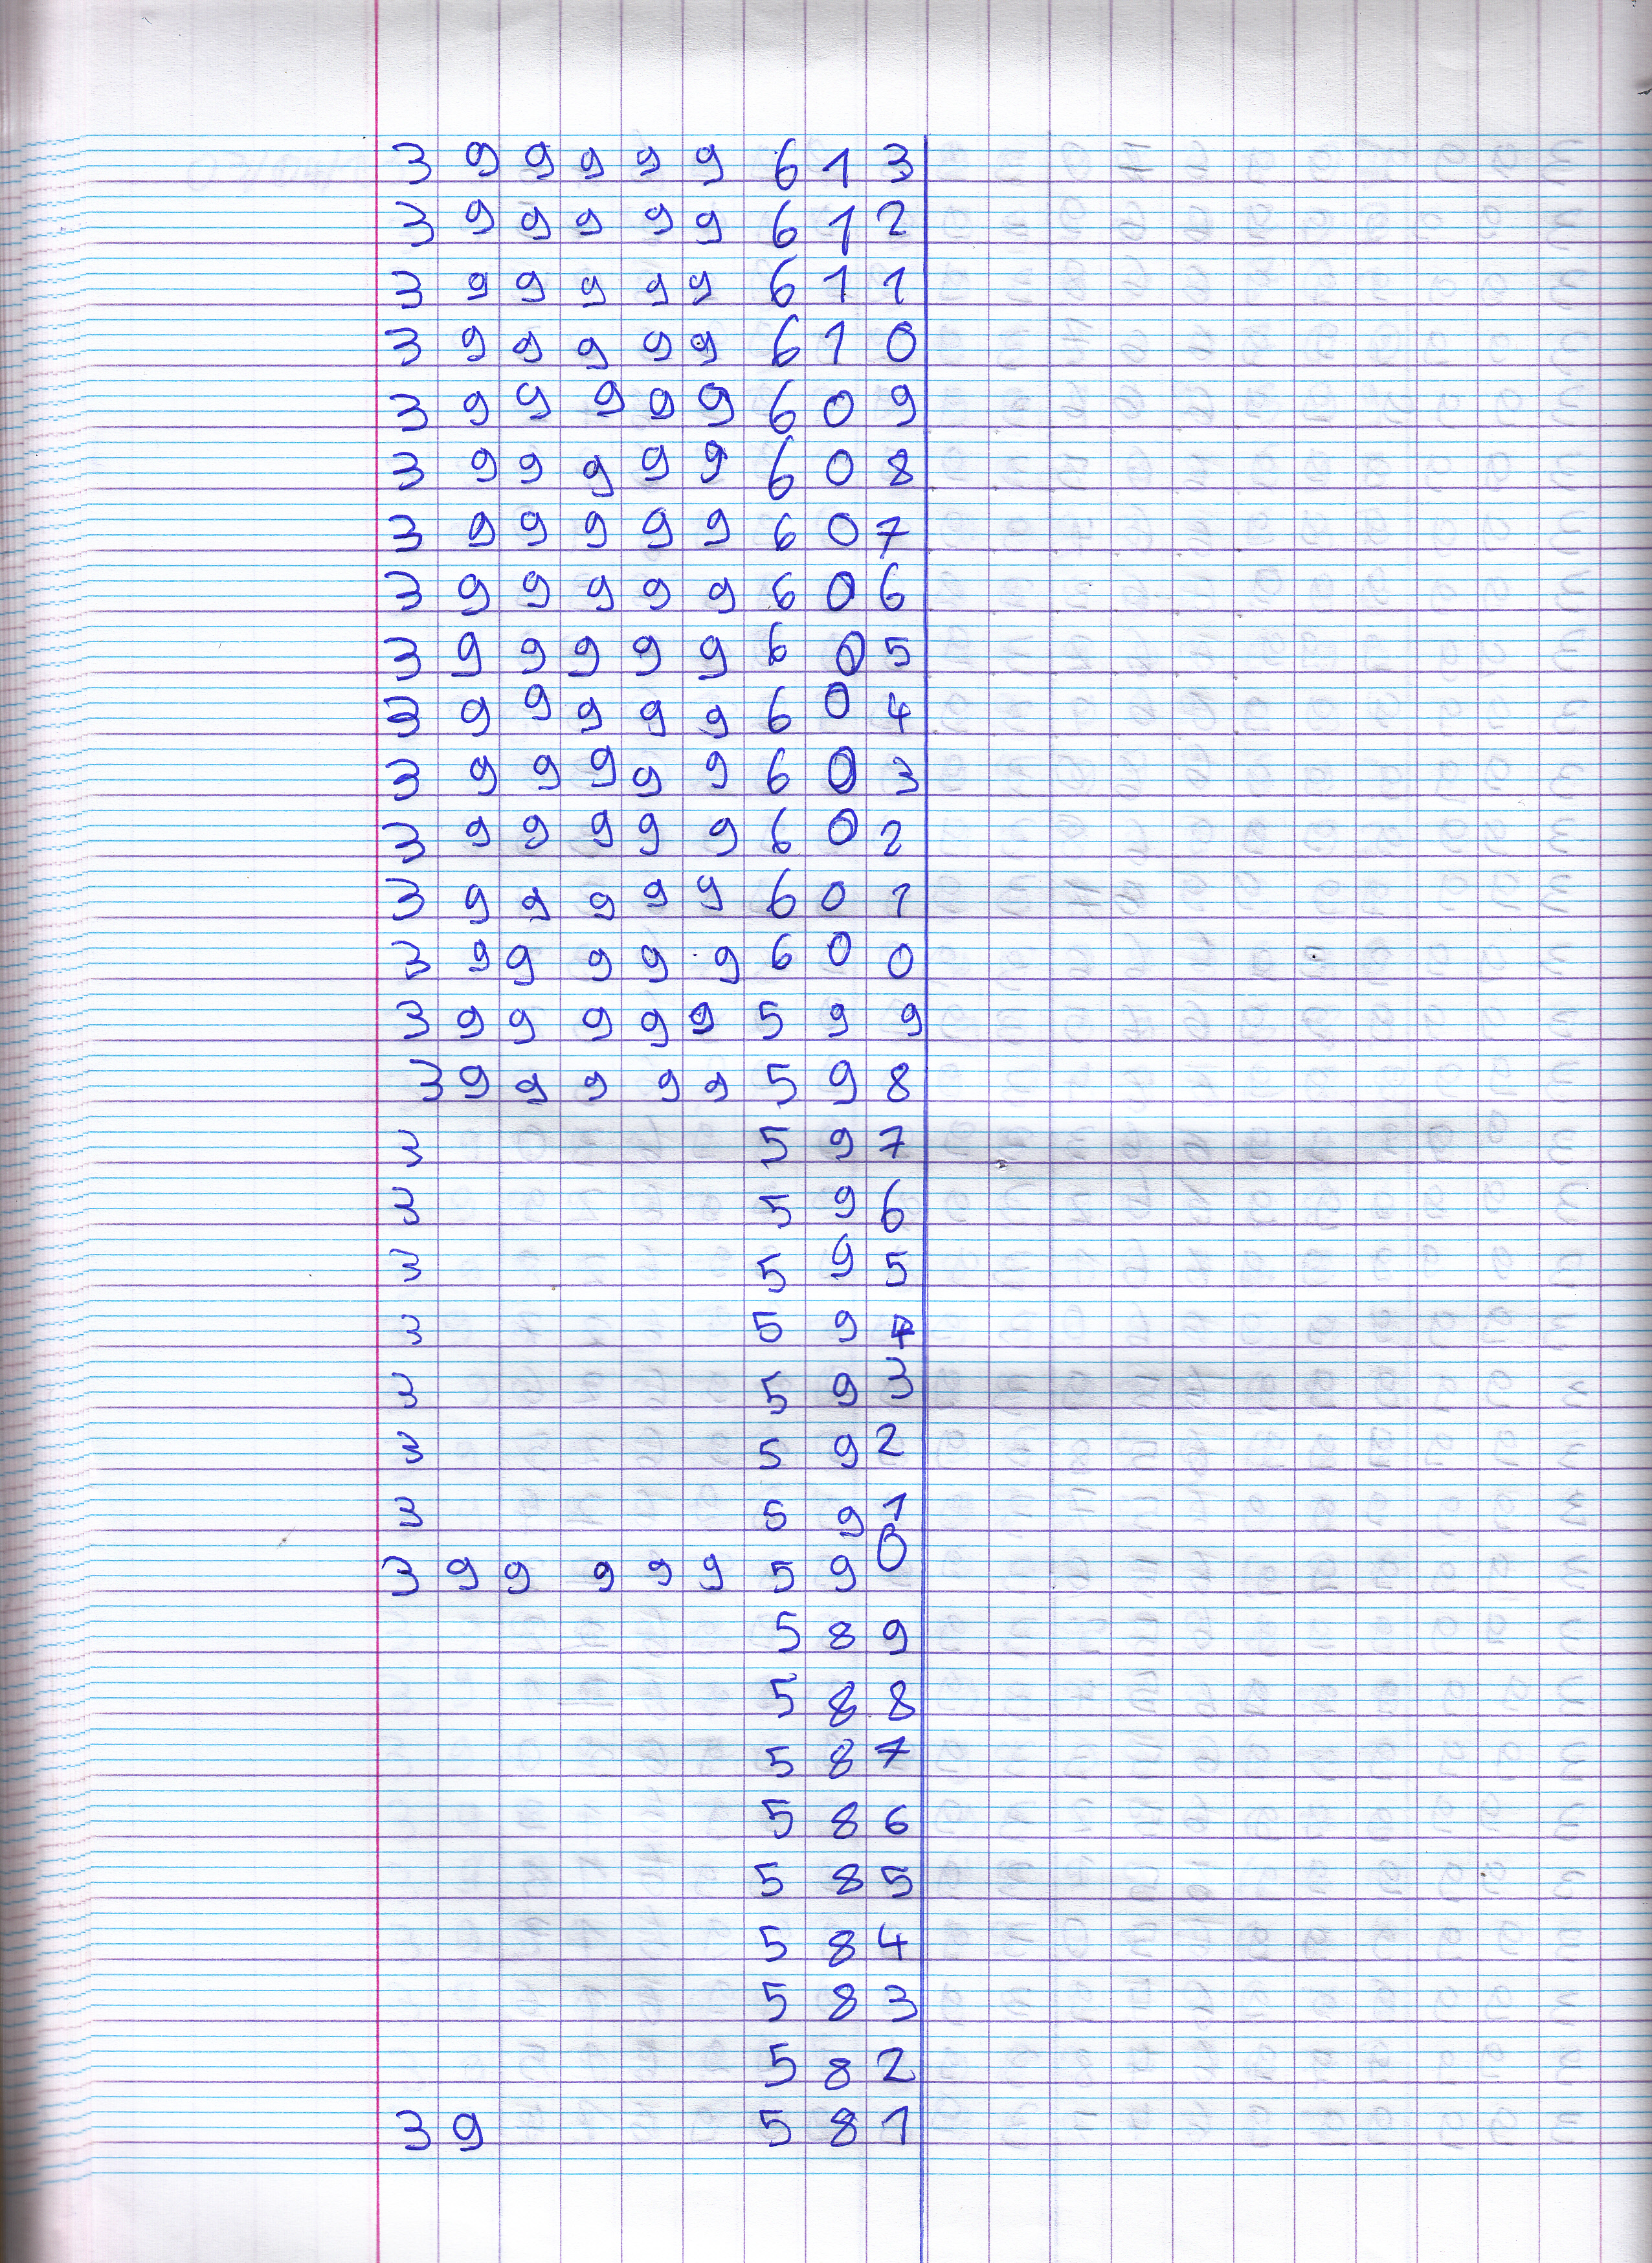 3 9 9 9 9 9 6 1 3
3 9 9 9 9 9 6 1 2
3 9 9 9 9 9 6 1 1
3 9 9 9 9 9 6 1 0
3 9 9 9 9 9 6 0 9
3 9 9 9 9 9 6 0 8
3 9 9 9 9 9 6 0 7
3 9 9 9 9 9 6 0 6
3 9 9 9 9 9 6 0 5
3 9 9 9 9 9 6 0 4
3 9 9 9 9 9 6 0 3
3 9 9 9 9 9 6 0 2
3 9 9 9 9 9 6 0 1
3 9 9 9 9 9 6 0 0
3 9 9 9 9 9 5 9 9
3 9 9 9 9 9 5 9 8
3 5 9 7
3 5 9 6
3 5 9 5
3 5 9 4
3 5 9 3
3 5 9 2
3 5 9 1
3 9 9 9 9 9 5 9 0
5 8 9
5 8 8
5 8 7
5 8 6
5 8 5
5 8 4
5 8 3
5 8 2
3 9 5 8 1